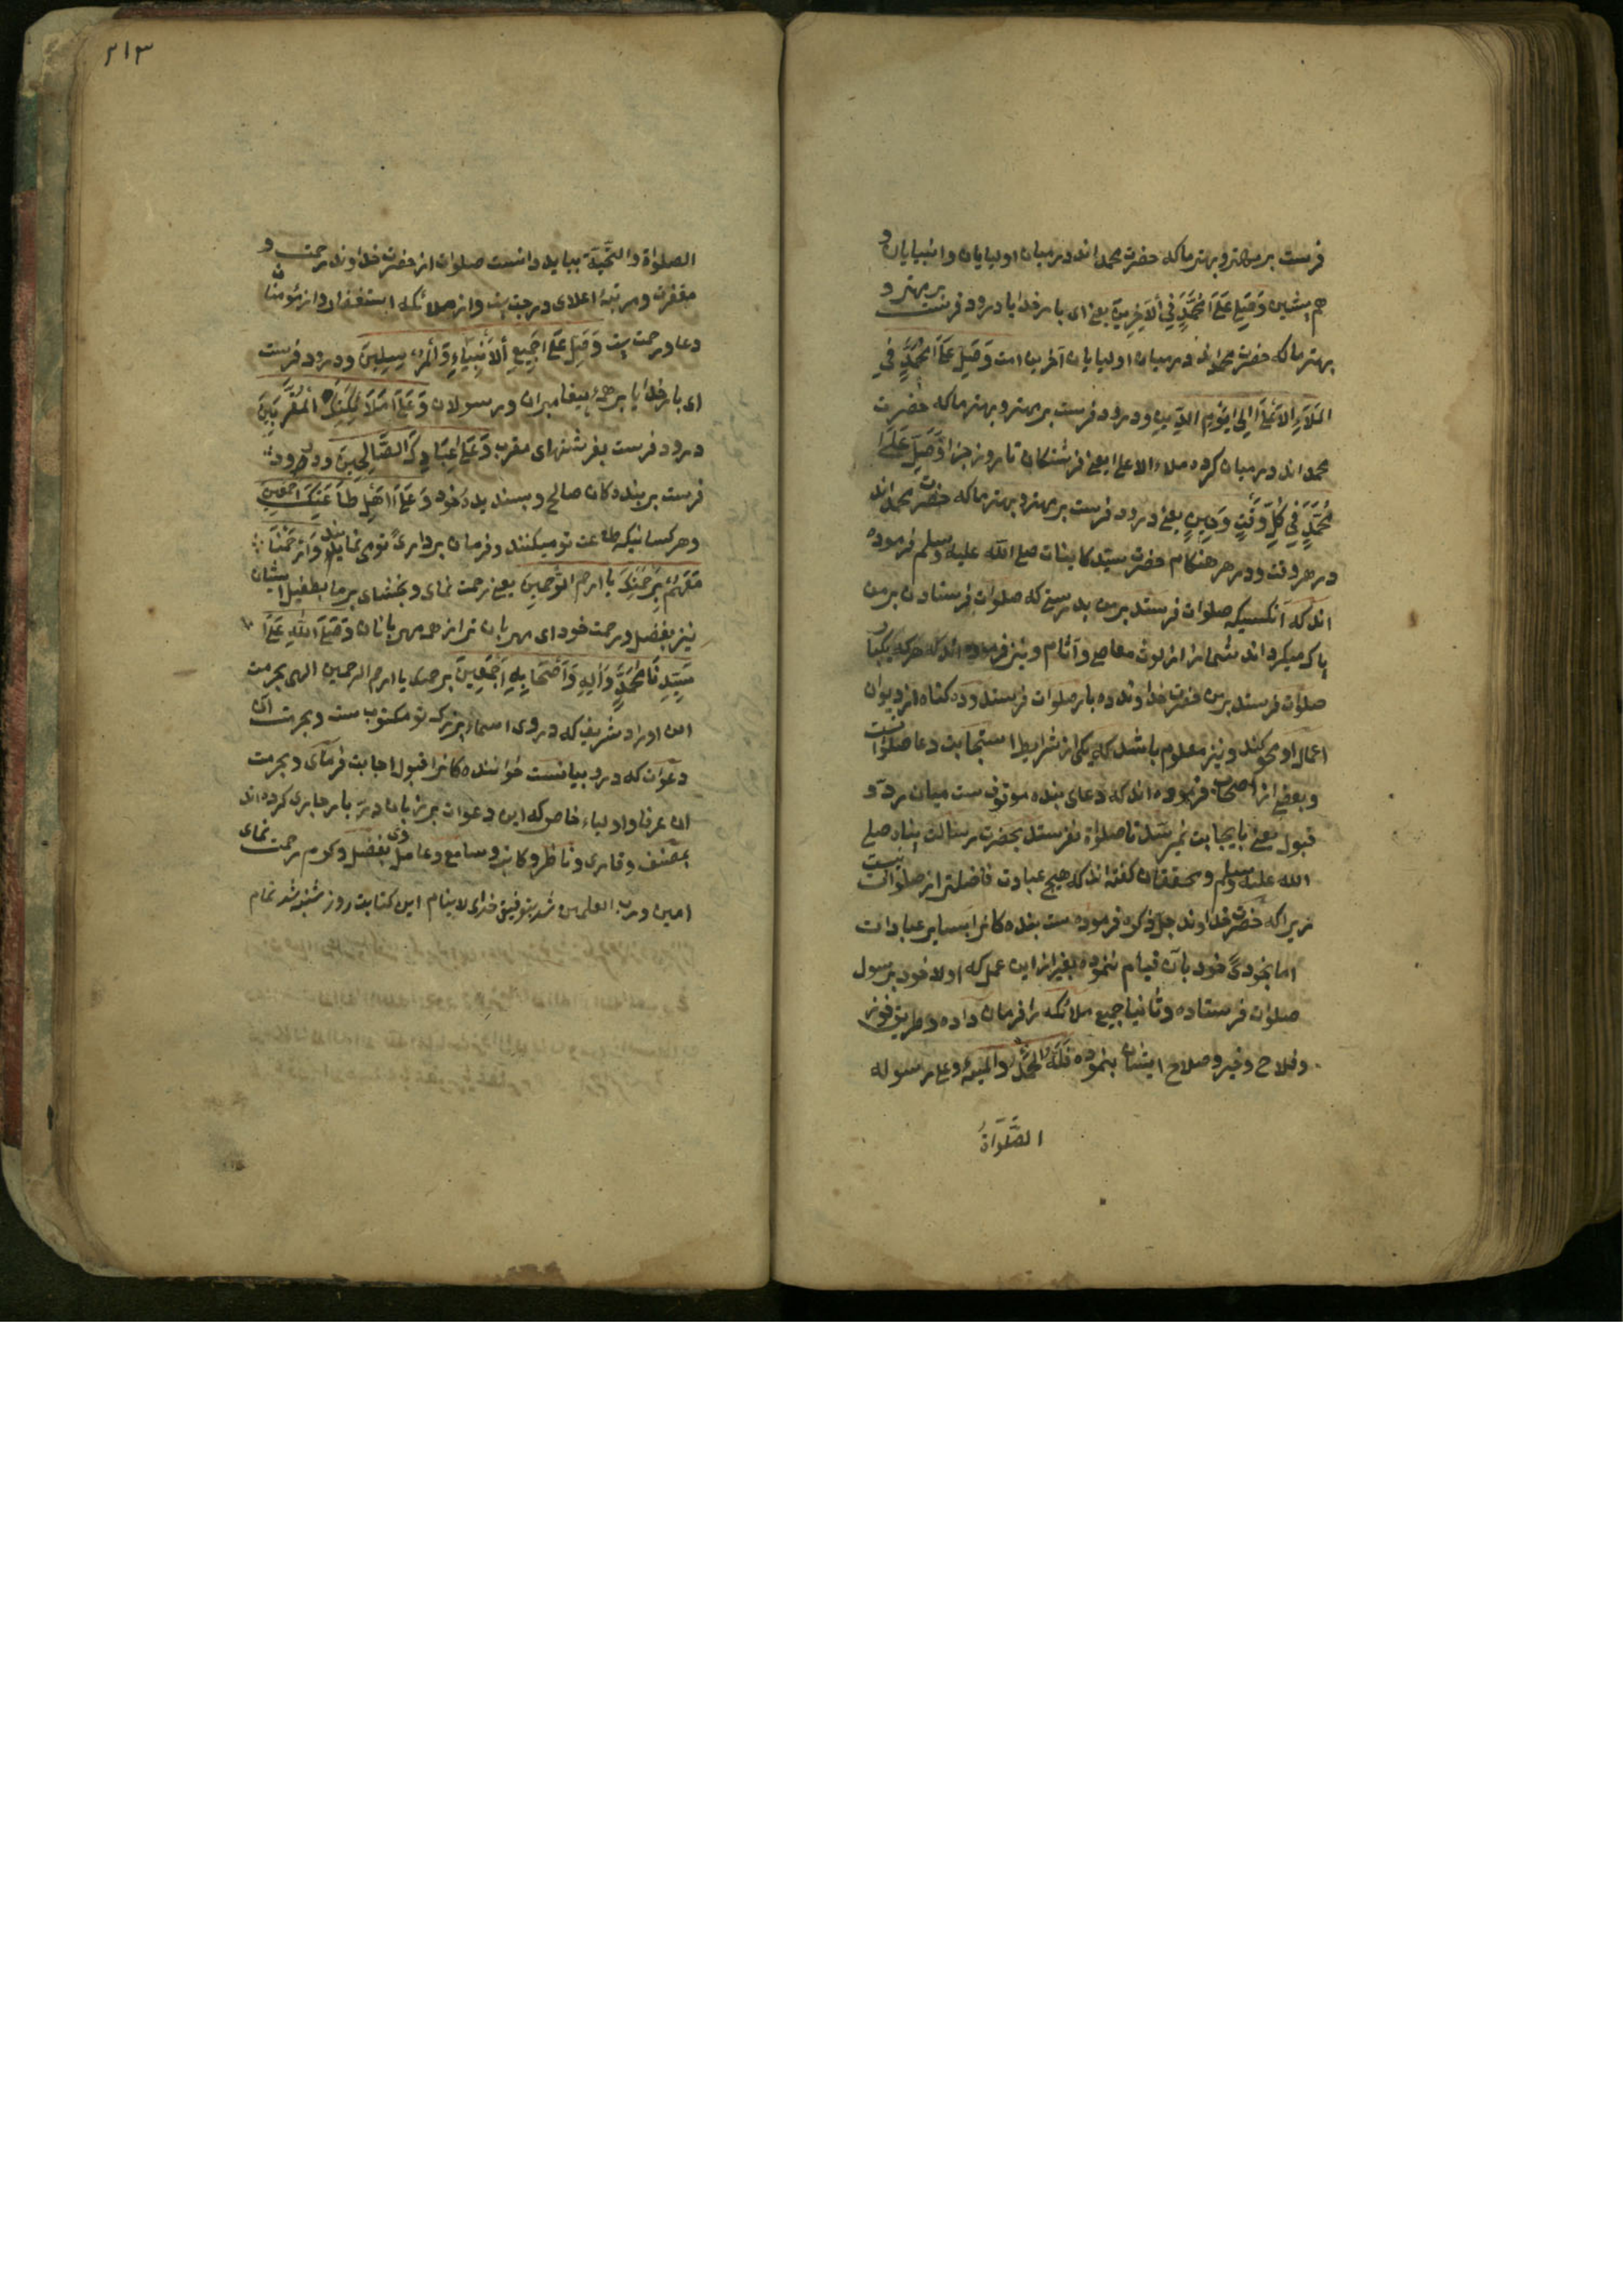 فرست بر مهتر و بهتر ما که حضرت محمد اند در میان اولیایان و انبیایان و
هم پیشین وَصَلِّ عَلَىٰ مُحَمَّدٍ فِي ٱلآخِرِينَ یعنی ای بار خدایا درود فرست بر مهتر و
بهتر ما که حضرت محمد اند در میان اولیایان آخرین امت وَصَلِّ عَلَىٰ مُحَمَّدٍ فِي
المَلَاءِ الاَعْلَىٰ اِلَىٰ يَوْمِ الدِّينِ و درود فرست بر مهتر و بهتر ما که حضرت
محمد اند در میان کرده ملاء الاعلی یعنی فرشتکان تا روز جزا وَصَلِّ عَلَىٰ
مُحَمَّدٍ فِي كُلِّ وَقْتٍ وَحِينٍ یعنی درود فرست بر مهتر و بهتر ما که حضرت محمد اند
در هر وقت و در هر هنکام حضرت سید کاینات صلی الله علیه وسلم فرموده
اند که آنکسیکه صلوات فرستد بر من بدرستی که صلوات فرستادن بر من
پاک میکرداند شما را از لوث معاصی و آثام و نیز فرموده اند که هر که یکبار
صلوات فرستد بر من حضرت خداوند ده بار صلوات فرستد و ده کناه از دیوان
اعمال او محو کند و نیز معلوم باشد که یکی از شرایط استجابت دعا صلوات است
و بعضی از اصحاب فرموده اند که دعای بنده موقوف ست میان رد و
قبول یعنی باجابت نمیرسد تا صلوٰة نفرستد بحضرت رسالت پناه صلی
الله علیه وسلم و محققان کفته اند که هیچ عبادت فاضلتر از صلوات نیست
زیرا که حضرت خداوند جل ذکره فرموده ست بنده کانرا بسایر عبادات
اما بخودی خود بآن قیام ننموده بغیر از این عمل که اولا خود بر رسول
صلوات فرستاده و ثانیا جمیع ملائکه را فرمان داده و طریق فوز
و فلاح و خیر و صلاح ایشان بنموده فلله الحمد والمنه وعلی رسوله
الصَّلَوٰاةُ
۲۱۳
الصلواة والتحیة بباید دانست صلوات از حضرت خداوند رحمت و
مغفرت و مرتبهٔ اعلای درجت ست و از ملائکه استغفار و از مؤمنان
دعا و رحمت ست وَصَلِّ عَلَىٰ جَمِيعِ ٱلاَنْبِيَاءِ وَٱلْمُرْسَلِينَ و درود فرست
ای بار خدایا بر همهٔ پیغامبران و رسولان وَعَلَىٰ مَلَائِكَتِكَ الْمُقَرَّبِينَ
درود فرست بفرشتهای مقرب وَعَلَىٰ عِبَادِكَ الصَّالِحِينَ و درود
فرست بر بنده کان صالح و پسندیده خود وَعَلَىٰ اَهْلِ طَاعَتِكَ اَجْمَعِينَ
و هر کسانیکه طاعت تو میکنند و فرمان برداری تو می نمایند وَارْحَمْنَا
مَعَهُمْ بِرَحْمَتِكَ يا ارحم الرّٰحمین یعنی رحمت نمای و بخشای بر ما بطفیل ایشان
نیز بفضل و رحمت خود ای مهربان تر از همه مهربانان وَصَلَّى اللّٰهُ عَلَىٰ
سَيِّدِنَا مُحَمَّدٍ وَآلِهِ وَاَصْحَابِهِ اَجْمَعِينَ برحمتک یا ارحم الرحمین الهی بحرمت
این اوراد شریف که در وی اسماء بزرک تو مکتوب ست و بحرمت آن
دعوات که در و بیانست خواننده کانرا قبول اجابت فرمای و بحرمت
آن عرفا و اولیاء خاص که این دعوات بر زبان دربار جاری کرده اند
بمصنف و قاری و ناظر و کاتب و سامع و عامل وی بفضل و کرم رحمت نمای
امین و رب العلمین شد بتوفیق خدای لاینام این کتابت روز شنبه شد تمام